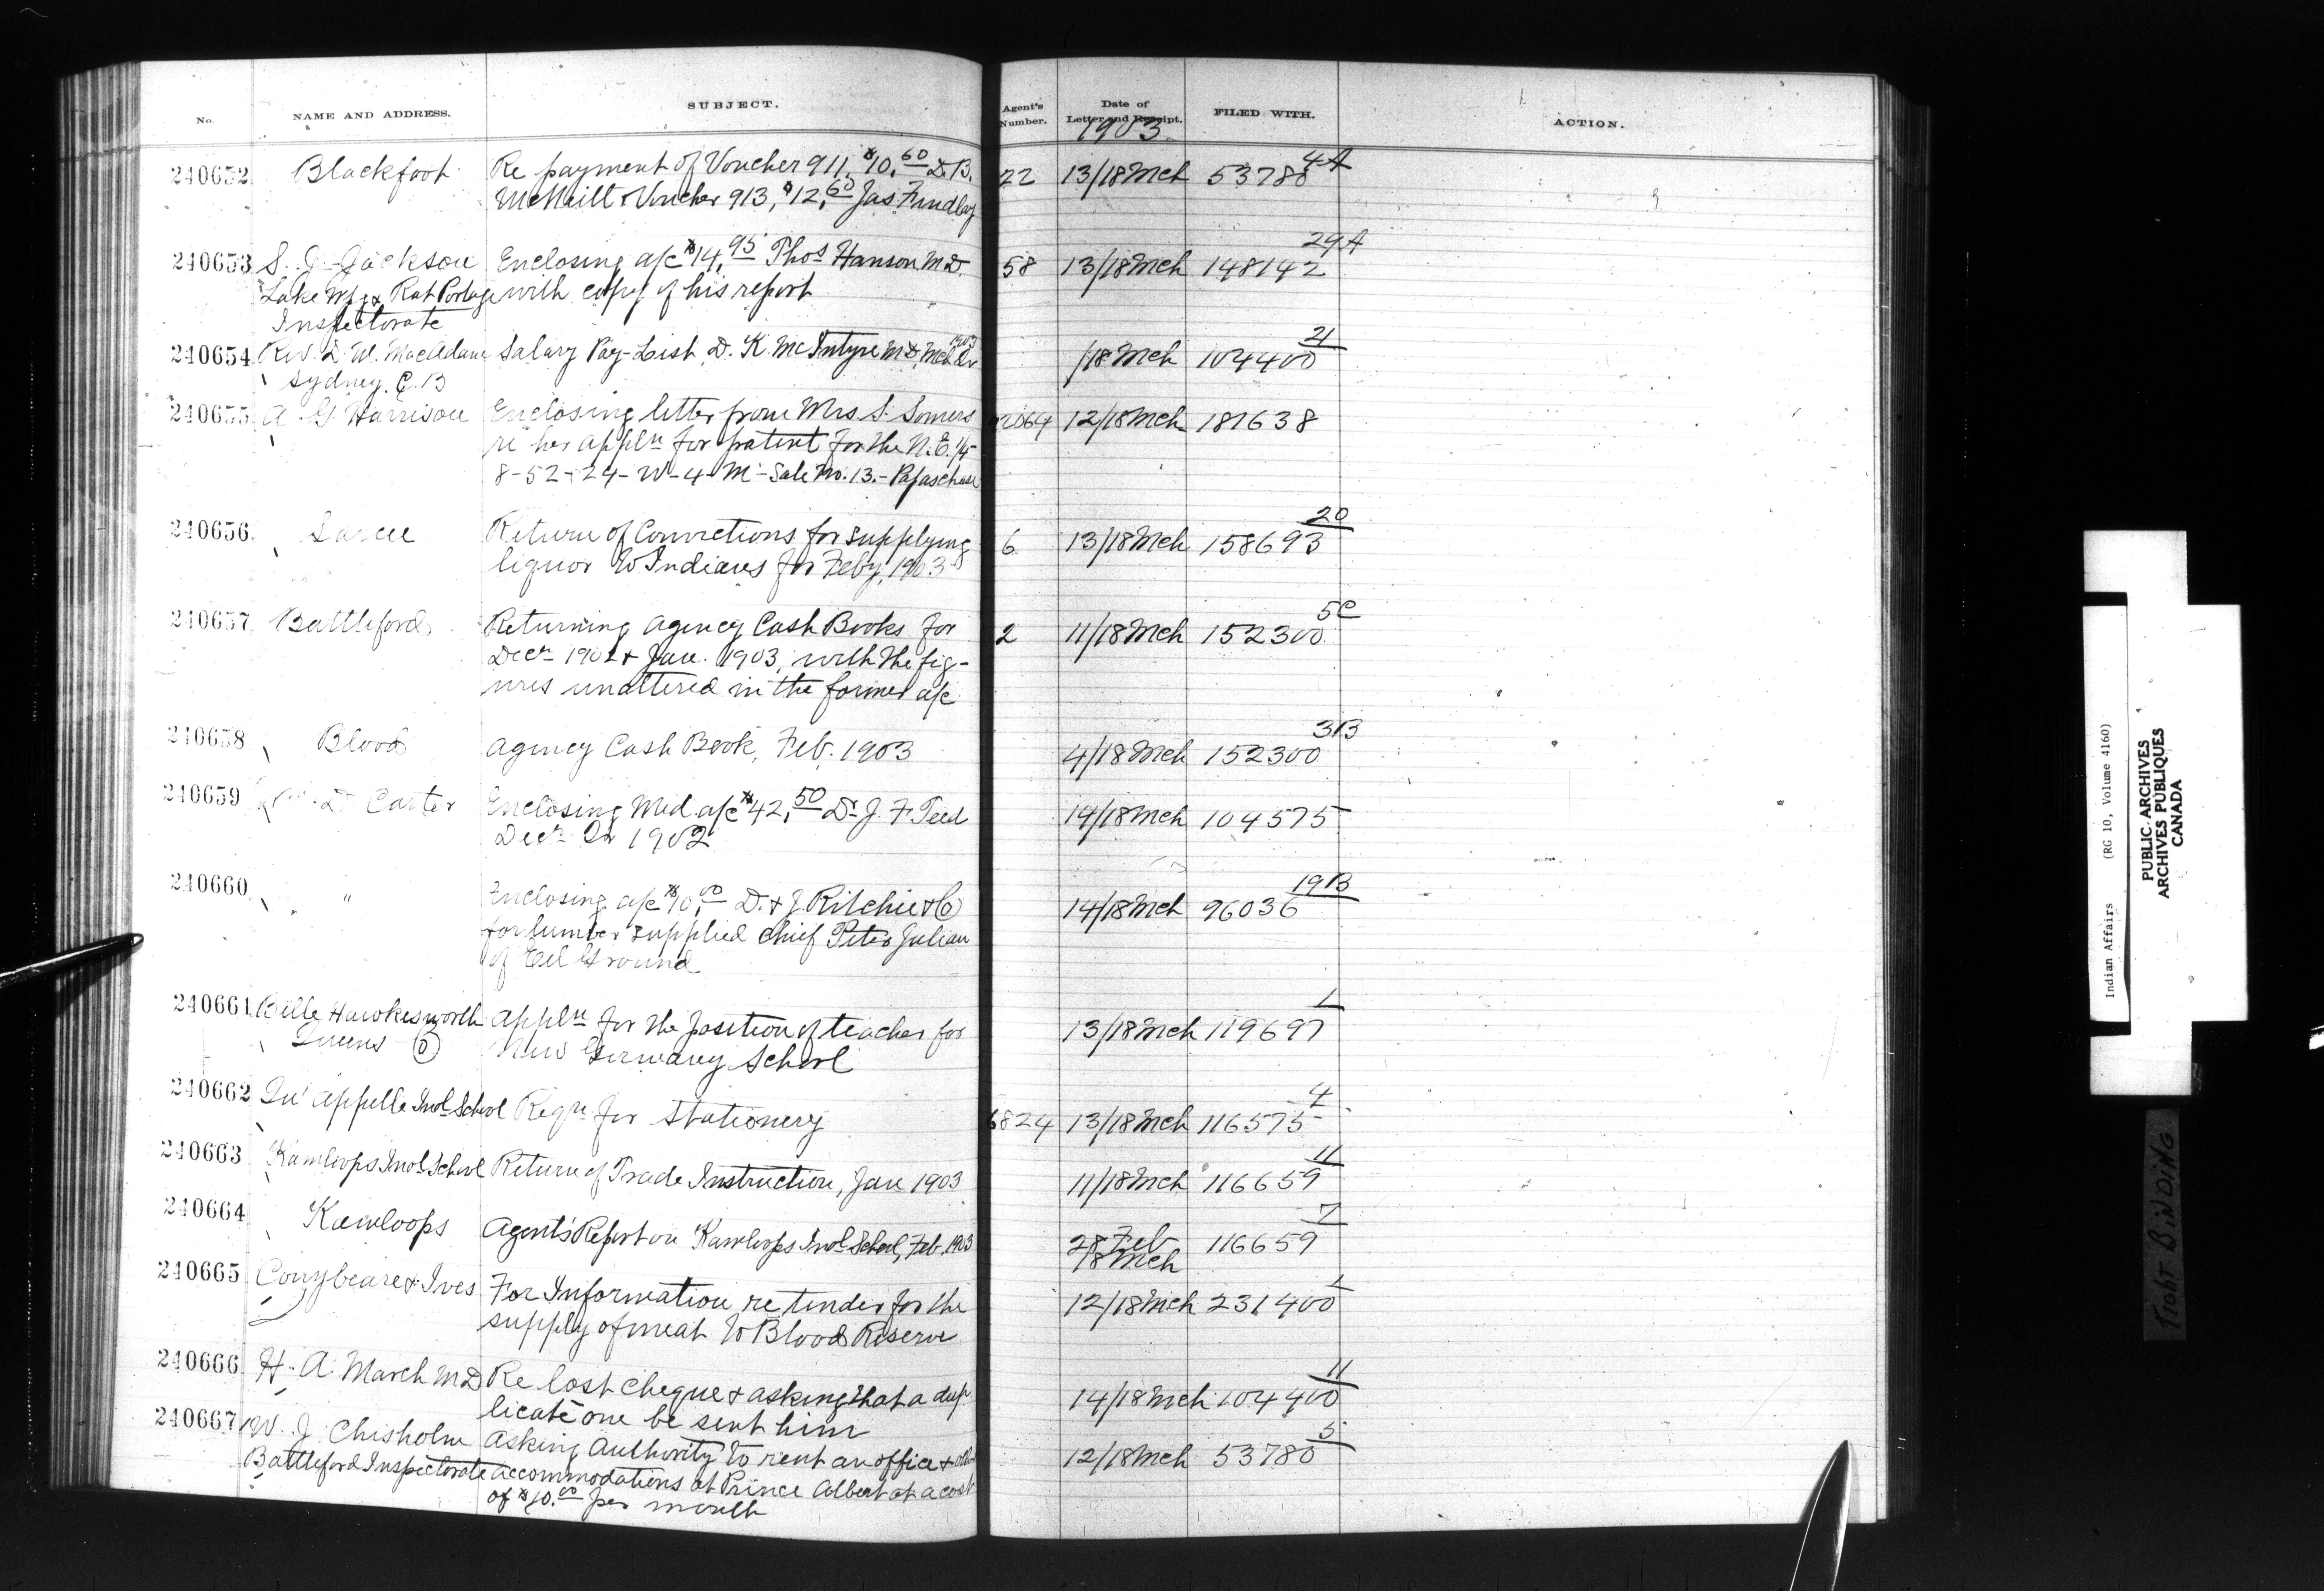 No. NAME AND ADDRESS. SUBJECT. Agent's Number. Date of Letter and Receipt. FILED WITH. ACTION.
1903
240652 Blackfoot Re payment of Voucher 911, $10.60 D. B. 22 13/18 Mch 53780 4A
McNeill & Voucher 913, $12.60 Jas. Findlay
240653 S. J. Jackson Enclosing a/c $14.95 Thos Hanson M.D. 58 13/18 Mch 148142 29A
Lake Wpg & Rat Portage with copy of his report
Inspectorate
240654 Rev. D. W. MacAdam Salary Pay-List, D. K. McIntyre M.D, Mch Qr 1903 /18 Mch 104400 21
Sydney, C. B
240655 A. G. Harrison Enclosing letter from Mrs S. Somers 2064 12/18 Mch 181638
re her appln for patent for the N. E. 1/4
8-52-24-W-4-M- Sale No. 13.- Papaschase
240656 Sarcee Return of Convictions for supplying 6 13/18 Mch 158693 20
liquor to Indians for Feby, 1903
240657 Battleford Returning Agency Cash Books for 2 11/18 Mch 152300 5C
Decr 1902 & Jan. 1903, with the fig-
ures unaltered in the former a/c
240658 Blood Agency Cash Book, Feb. 1903 4/18 Mch 152300 3B
240659 D Carter Enclosing Med. a/c $42.50 Dr J. F. Teed 14/18 Mch 104575
Decr Qr 1902
240660 " Enclosing a/c $10.00 D. & J. Ritchie & Co 14/18 Mch 96036 19B
for lumber supplied Chief Peter Julian
of Eel Ground
240661 Belle Hawkesworth Appln for the position of teacher for 13/18 Mch 119697 1
Queens O New Germany School
240662 Qu'Appelle Indl School Reqn for Stationery 6824 13/18 Mch 116575 4
240663 Kamloops Indl School Return of Trade Instruction, Jan 1903 11/18 Mch 116659 11
240664 Kamloops Agent's Report on Kamloops Indl School, Feb. 1903 28 Feb 116659 7
18 Mch
240665 Conybeare & Ives For Information re tender for the 12/18 Mch 231400 1
supply of meat to Blood Reserve
240666 H. A. March M.D Re lost cheque & asking that a dup- 14/18 Mch 104400 11
licate one be sent him
240667 W. J. Chisholm Asking Authority to rent an office & other 12/18 Mch 53780 5
Battleford Inspectorate accommodations at Prince Albert at a cost
of $10.00 per month
Indian Affairs (RG 10, Volume 4160)
PUBLIC ARCHIVES
ARCHIVES PUBLIQUES
CANADA
TIGHT BINDING